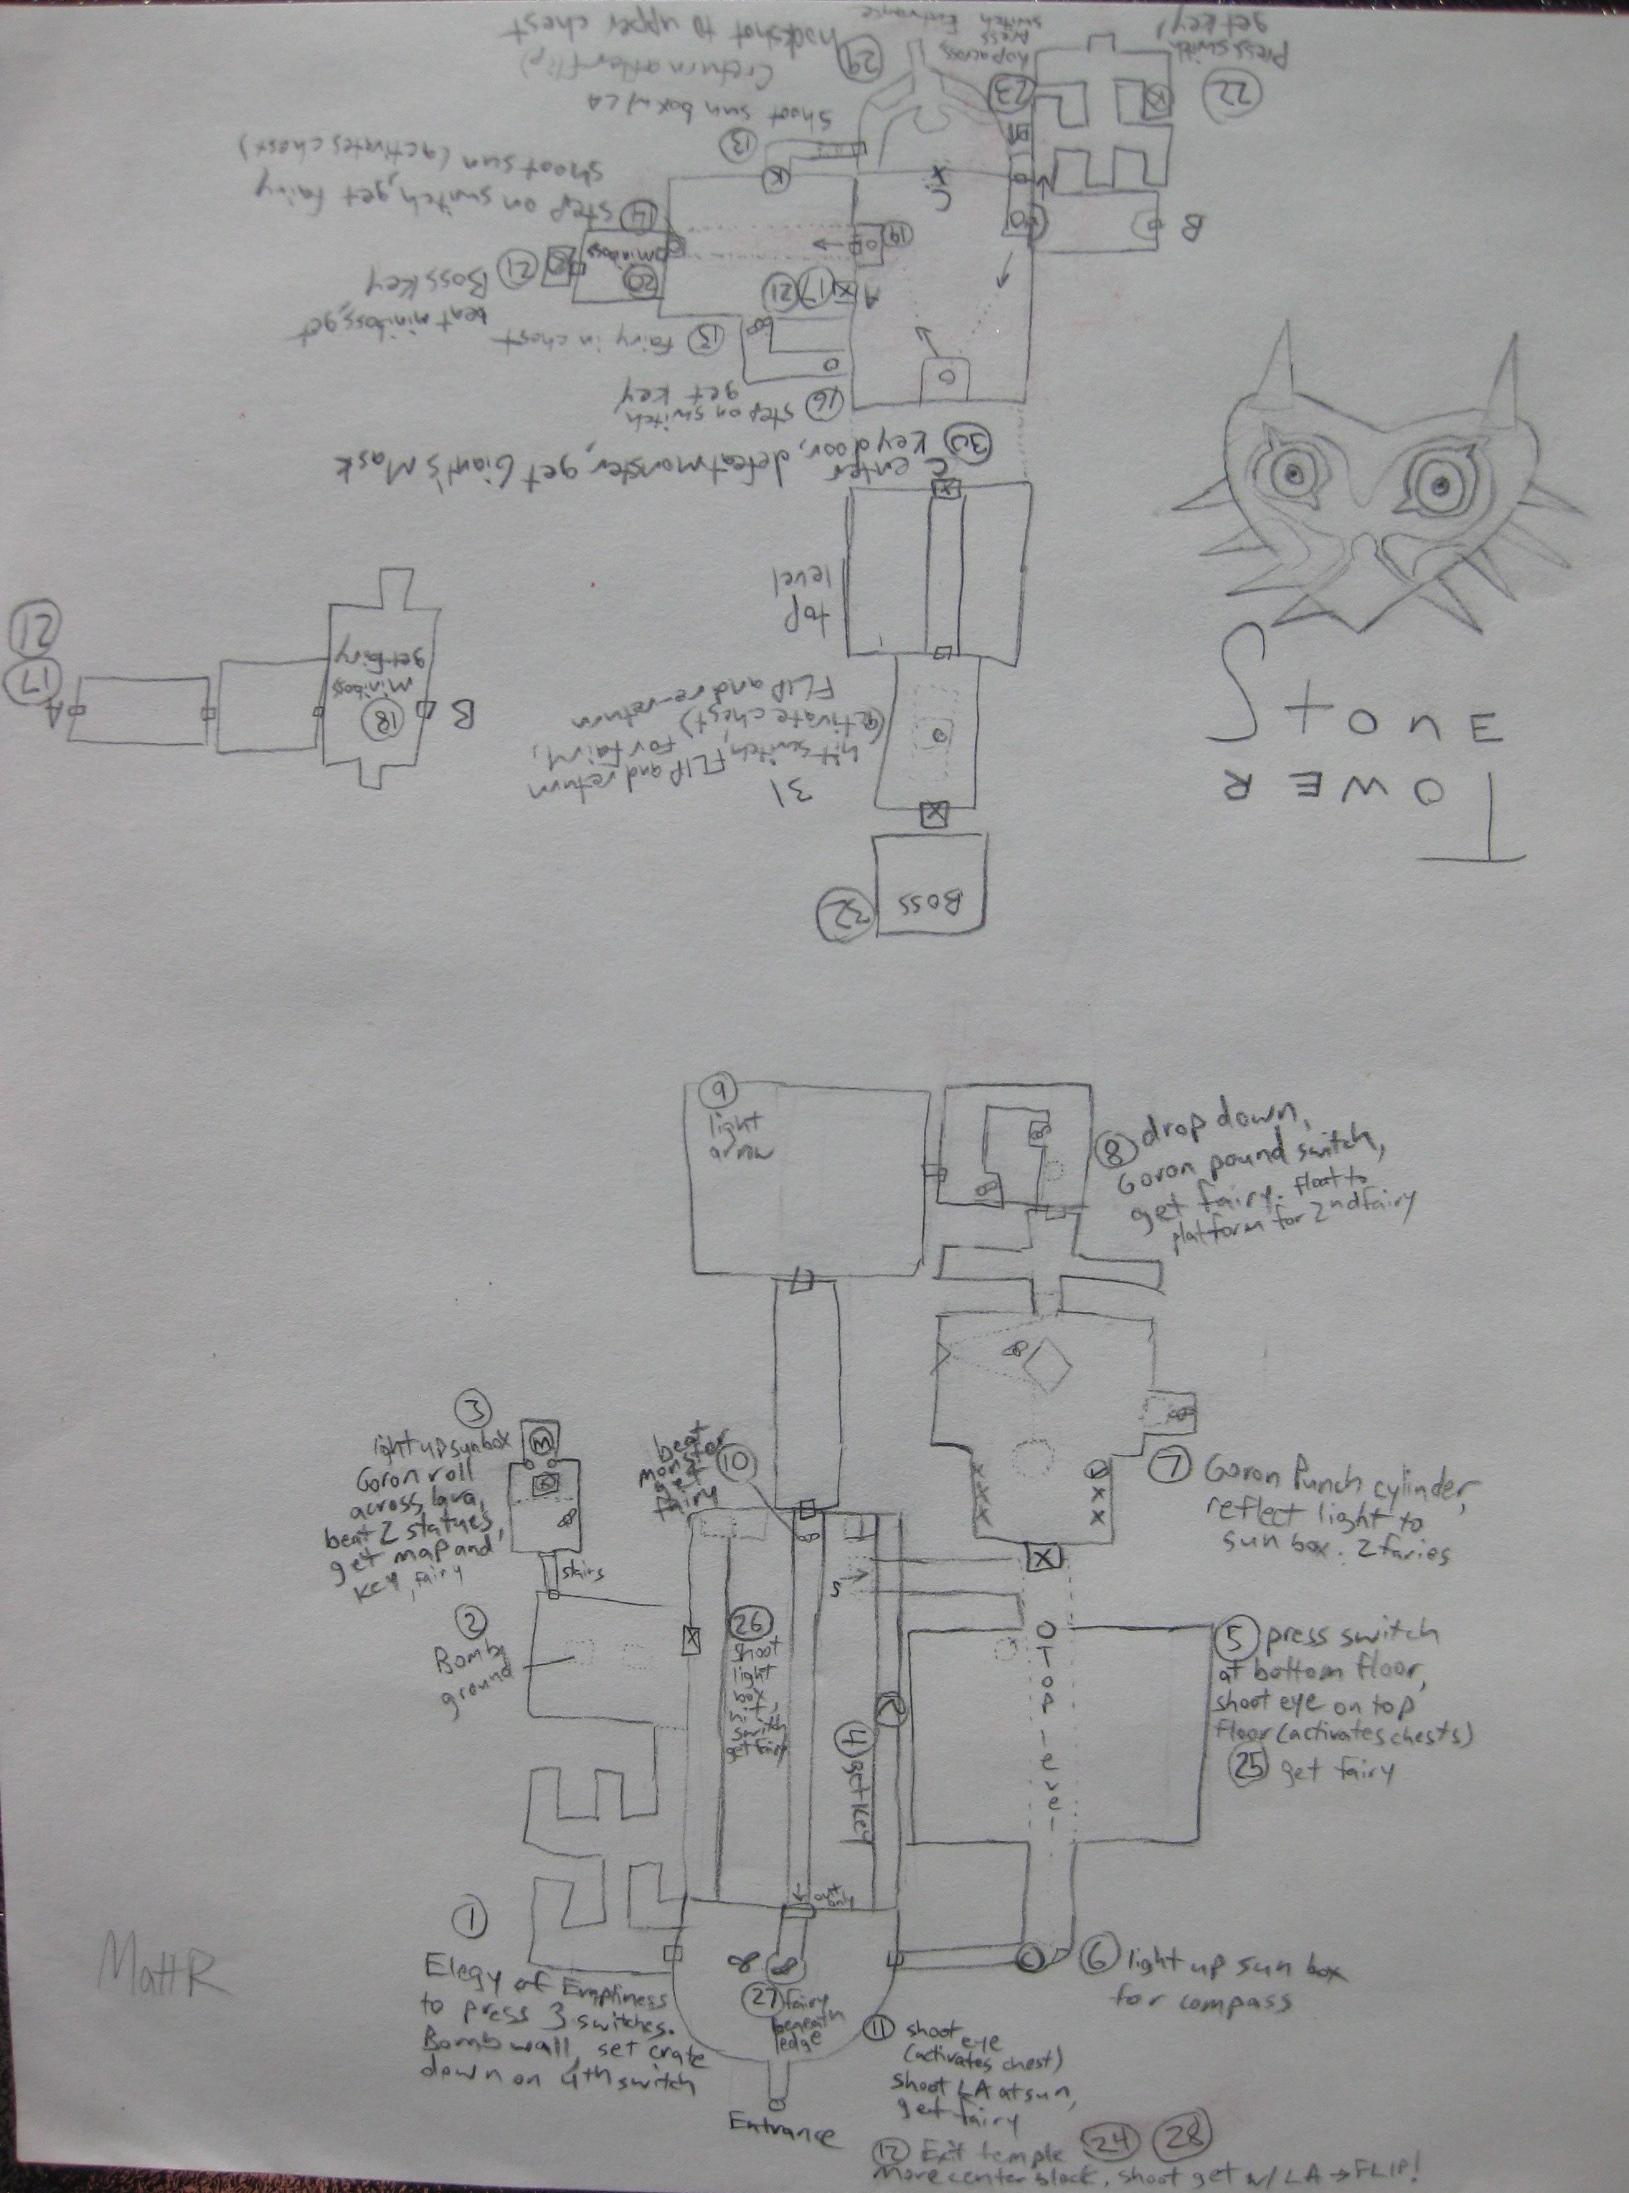 22
Press switch
get key!
23
hop across
press
switch
Entrance
29
hookshot to upper chest
(return after flip)
13
shoot sun box w/ LA
14
step on switch, get fairy
shoot sun (activates chest)
K
C
X
B
19
A
17
21
20
miniboss
21
beat miniboss, get
Boss Key
15
fairy in chest
16
step on switch
get key
30
enter
key door, defeat monster, get Giant's Mask
C
X
top
level
31
hit switch, FLIP and return
(activate chest) for fairy,
FLIP and re-return
X
32
BOSS
21
17
A
18
miniboss
get fairy
B
STONE
TOWER
9
light
arrow
8 drop down,
Goron pound switch,
get fairy. float to
platform for 2nd fairy
3
light up sun box
Goron roll
across lava,
beat 2 statues,
get map and
key, fairy
M
K
stairs
beat
monster
get
fairy
10
7 Goron Punch cylinder,
reflect light to
sun box. 2 faries
XXX
XX
X
2
Bomb
ground
X
26
shoot
light
box,
hit
switch
get fairy
S
4 get key
O Top level
5 press switch
at bottom floor,
shoot eye on top
floor (activates chests)
25 get fairy
out
only
1
Elegy of Emptiness
to press 3 switches.
Bomb wall, set crate
down on 4th switch
C
6 light up sun box
for compass
27 fairy
beneath
ledge
11 shoot
eye
(activates chest)
shoot LA at sun,
get fairy
Entrance
12 Exit temple 24 28
More center block, shoot get w/ LA → FLIP!
Matt R